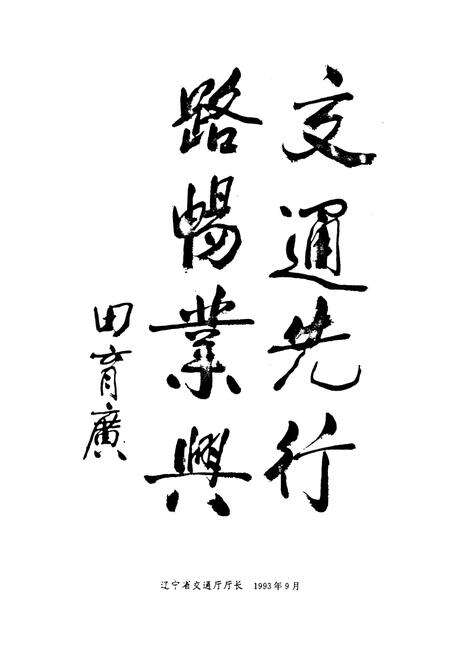 交通先行
路暢業興
田育廣
辽宁省交通厅厅长 1993年9月